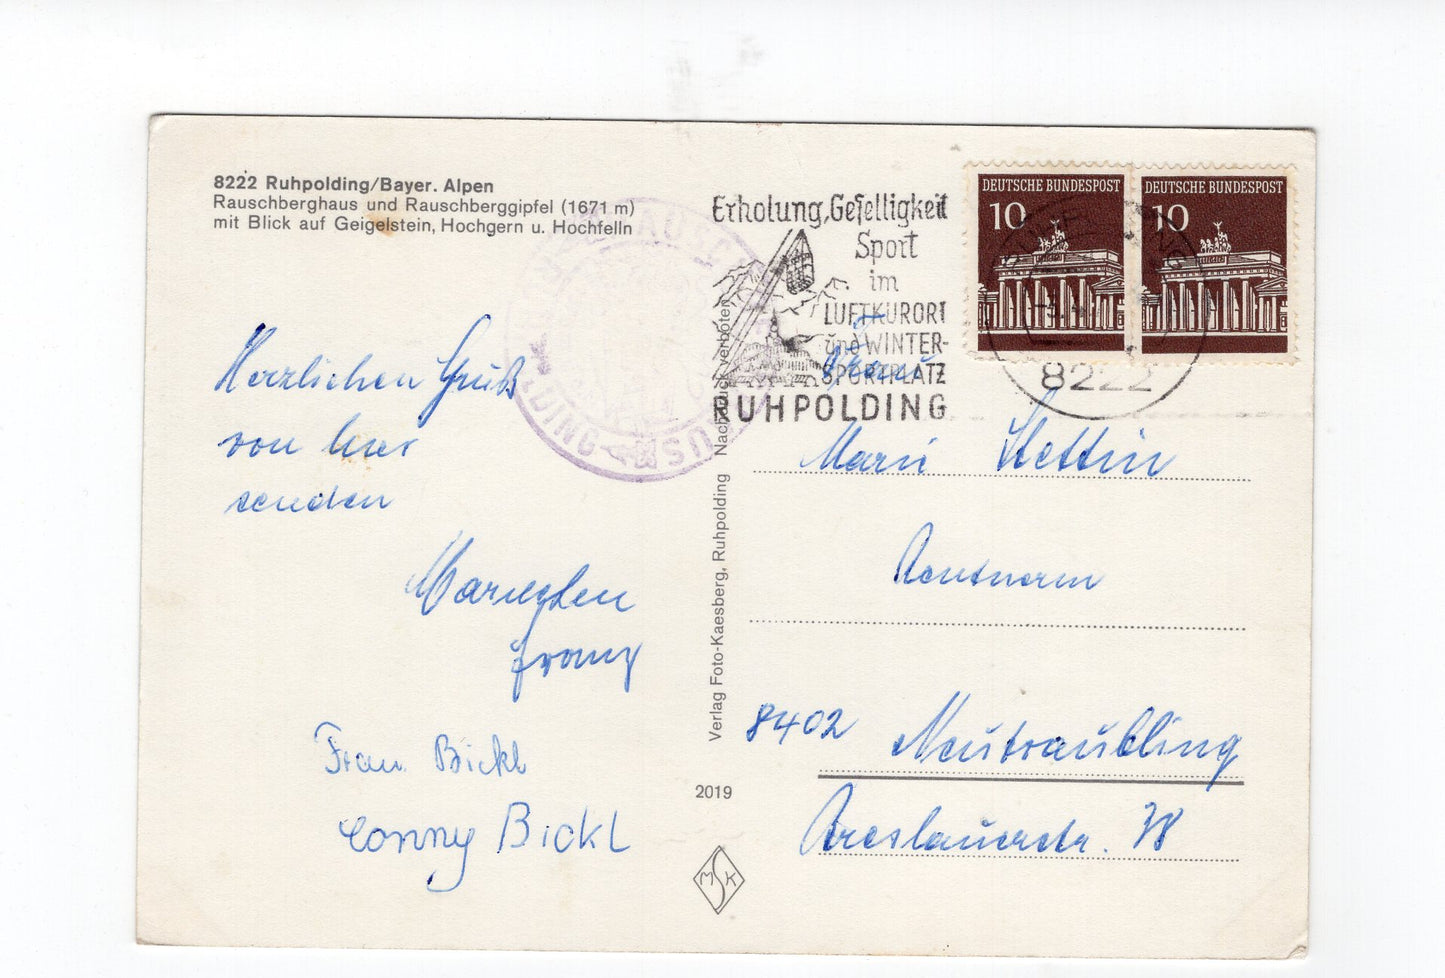 8222 Ruhpolding/Bayer. Alpen
Rauschberghaus und Rauschberggipfel (1671 m)
mit Blick auf Geigelstein, Hochgern u. Hochfelln
Herzlichen Gruß
von hier
senden
Mariechen
Franz
Frau Bickl
Conny Bickl
Verlag Foto-Kaesberg, Ruhpolding Nachdruck verboten
2019
MSK
Erholung, Geselligkeit
Sport
im
LUFTKURORT
und WINTER-
SPORTPLATZ
RUHPOLDING
DEUTSCHE BUNDESPOST
10
DEUTSCHE BUNDESPOST
10
8222
Frau
Marie Stettin
Rentnerin
8402 Neutraubling
Breslauerstr. 38